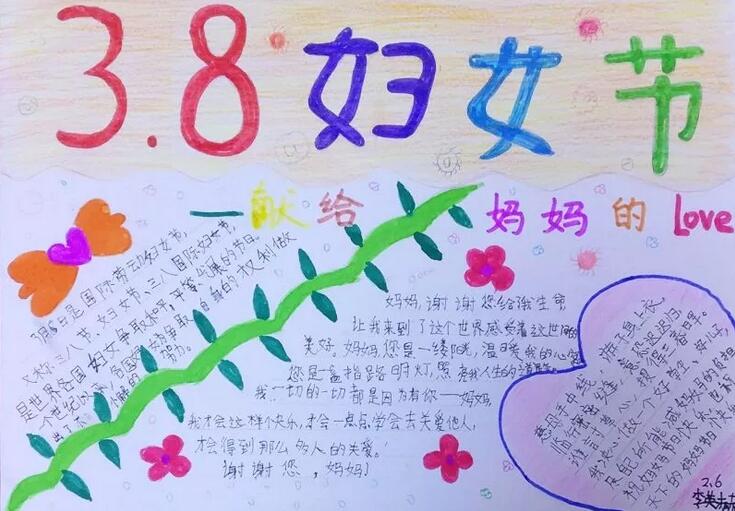 3.8妇女节
一献给妈妈的Love
3月8日是国际劳动妇女节,
又称三八节、妇女节、三八国际妇女节,
是世界各国妇女争取和平、平等、发展的节日。
一个世纪以来,各国妇女为争取自身的权利做
出了不懈的努力。
妈妈,谢谢您给我生命
让我来到了这个世界感受着这世间的
美好。妈妈,您是一缕阳光,温暖我的心
您是一盏指路明灯,照亮我人生的道
我一切的一切都是因为有你——妈妈,
我才会这样个快乐,才会一点点学会去关爱他人,
才会得到那么多人的关爱。
谢谢您,妈妈!
慈母手中线,游子身上衣。
临行密密缝,意恐迟迟归。
谁言寸草心,报得三春晖。
我决心做一个好学
祝妈妈节日快乐,也祝
天下的妈妈都快乐
2.6